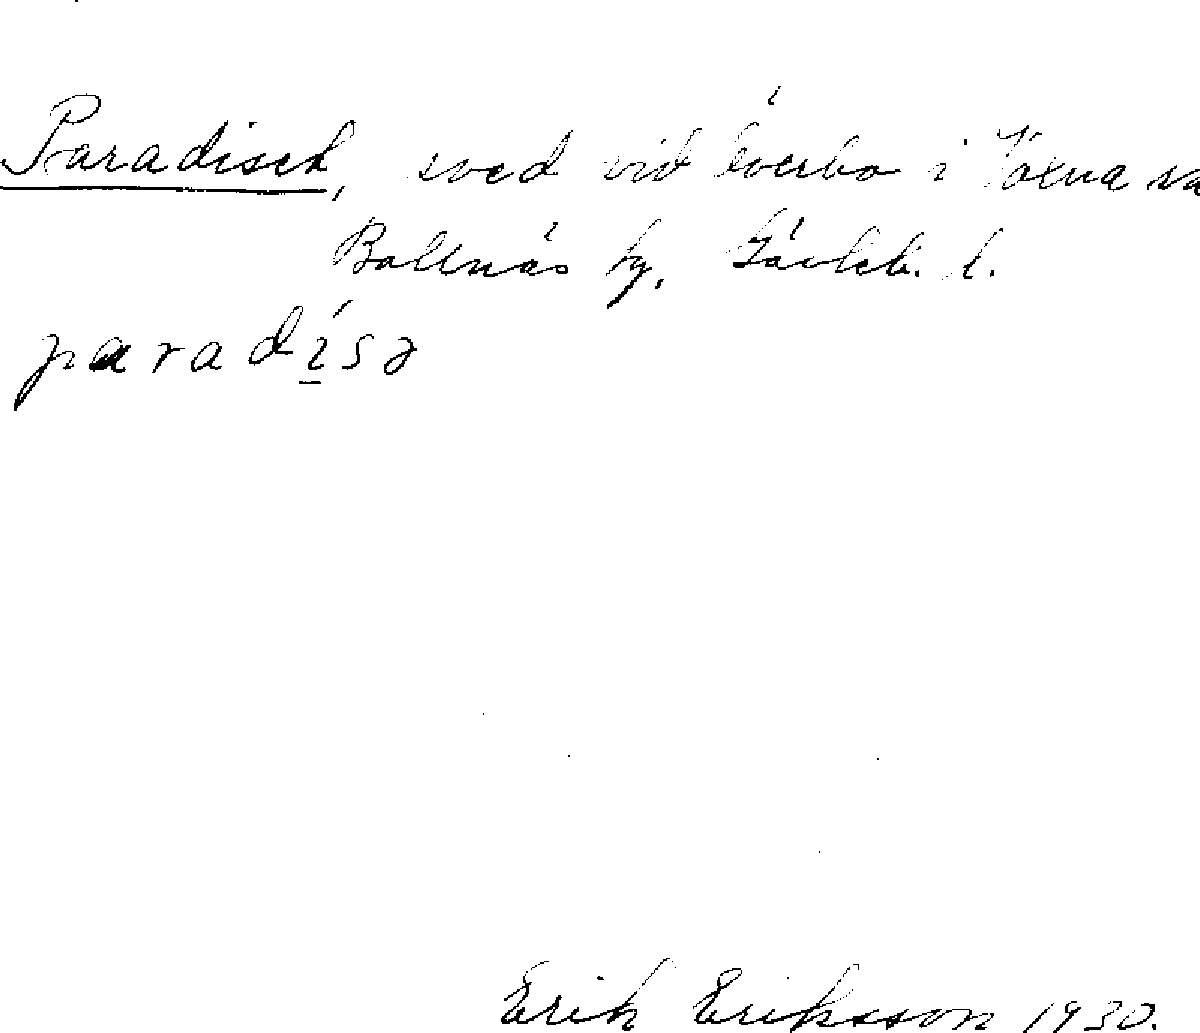 Paradiset, sved vid Överbo i Voxna sn
Bollnäs tg. Gävleb. l.
paradisə
Erik Eriksson 1930.